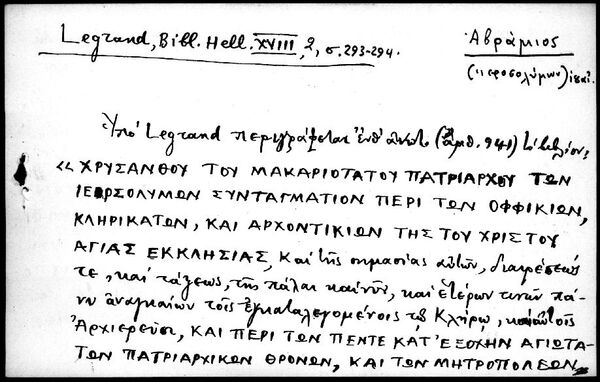 Legrand, Bibl. Hell. XVIII, 2, σ. 293-294.
Ἀβράμιος
(Ἱεροσολύμων)
Ὑπὸ Legrand περιγράφεται (ἀριθ. 941) τὸ βιβλίον,
«ΧΡΥΣΑΝΘΟΥ ΤΟΥ ΜΑΚΑΡΙΟΤΑΤΟΥ ΠΑΤΡΙΑΡΧΟΥ ΤΩΝ
ΙΕΡΟΣΟΛΥΜΩΝ ΣΥΝΤΑΓΜΑΤΙΟΝ ΠΕΡΙ ΤΩΝ ΟΦΦΙΚΙΩΝ,
ΚΛΗΡΙΚΑΤΩΝ, ΚΑΙ ΑΡΧΟΝΤΙΚΙΩΝ ΤΗΣ ΤΟΥ ΧΡΙΣΤΟΥ
ΑΓΙΑΣ ΕΚΚΛΗΣΙΑΣ, καὶ τῆς σημασίας αὐτῶν, διαιρέσεώς
τε, καὶ τάξεως, τῆς πάλαι καὶ νῦν, καὶ ἑτέρων τινῶν πά-
νυ ἀναγκαίων τοῖς ἐγκαταλεγομένοις τῷ Κλήρῳ, καὶ αὐτοῖς
Ἀρχιερεῦσι, ΚΑΙ ΠΕΡΙ ΤΩΝ ΠΕΝΤΕ ΚΑΤ' ΕΞΟΧΗΝ ΑΓΙΩΤΑ-
ΤΩΝ ΠΑΤΡΙΑΡΧΙΚΩΝ ΘΡΟΝΩΝ, ΚΑΙ ΤΩΝ ΜΗΤΡΟΠΟΛΕΩΝ